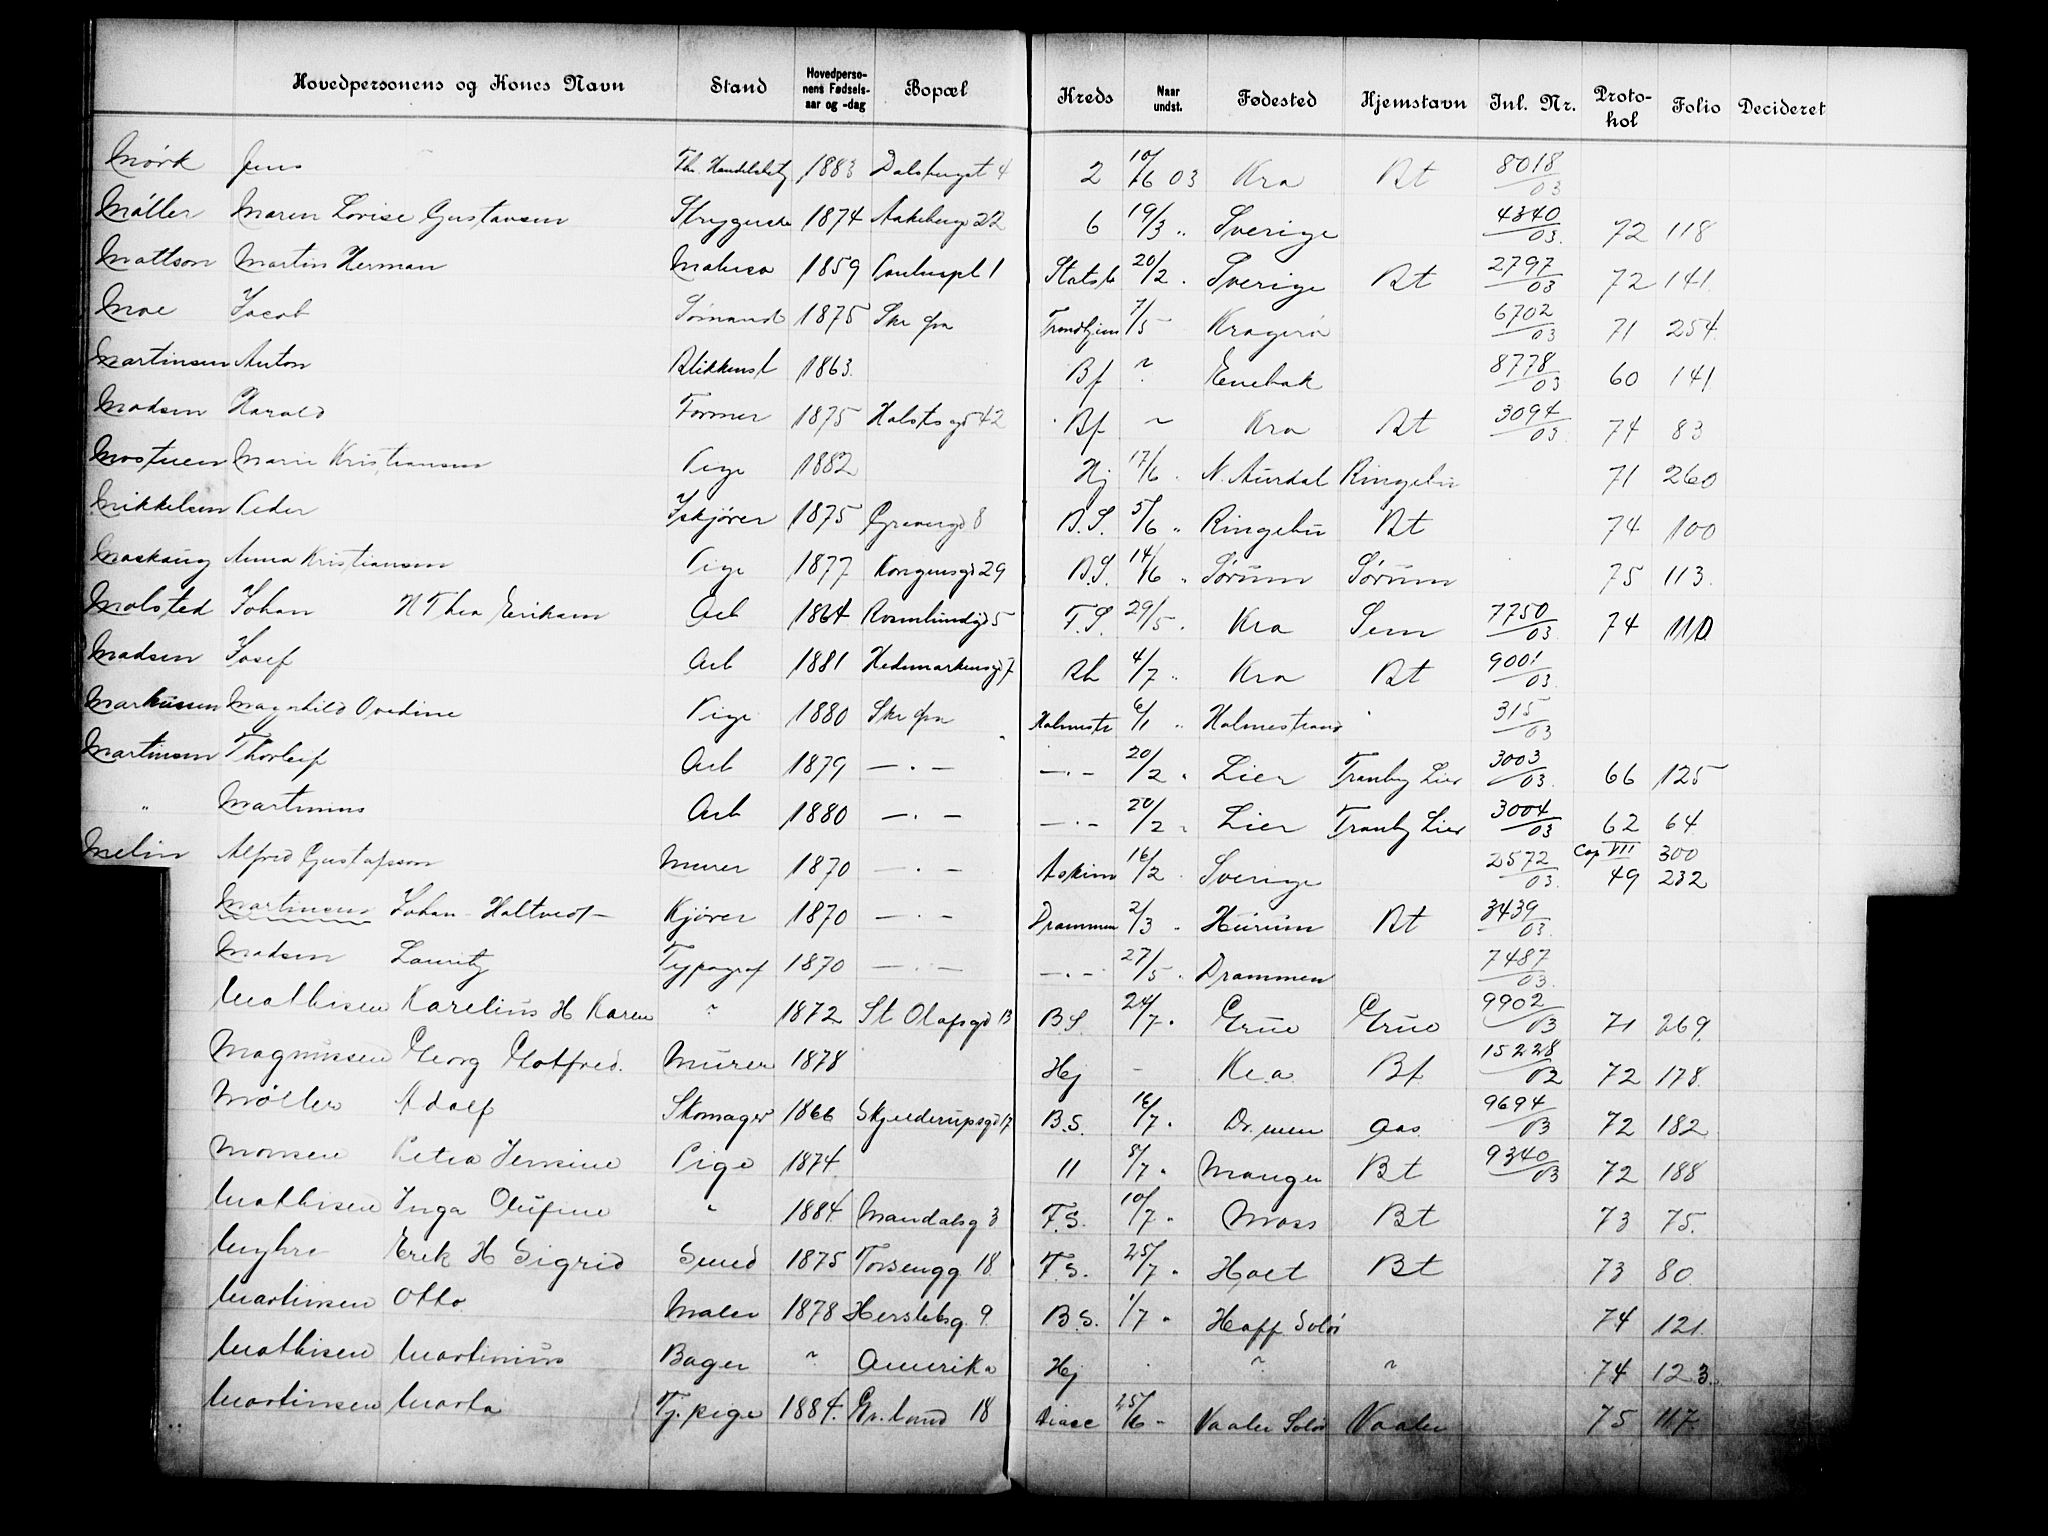 Hovedpersonens og Kones Navn Stand Hovedpersonens Fødselsaar og -dag Bopæl Kreds Naar undst. Fødested Hjemstavn Inl. Nr. Protokol Folio Decideret
Mørk Jens 1883 4 2 10/6 03 Kra Bt 8018/03
Møller Maren Lovise Gustavsen 1874 22 6 19/3 „ Sverige 4340/03 72 118
Mattson Martin Herman 1859 1 20/2 Sverige Bt 2797/03 72 141
Moe Jacob Sømand 1875 Skr fra Trondhjem 7/5 Kragerø 6702/03 71 254
Martinsen Anton Blikkensl 1863 Bf „ Enebak 8778/03 60 141
Madsen Harald Former 1875 42 Bf „ Kra Bt 3094/03 74 83
Mostuen Marie Kristiansen Pige 1882 Hj 17/6 N. Aurdal Ringebu 71 260
Mikkelsen Peder Iskjører 1875 8 B.S. 5/6 „ Ringebu Bt 74 100
Anna Kristiansen Pige 1877 Kongensgd 29 B.S. 14/6 „ Sørum Sørum 75 113
Molsted Johan H Thea Eriksen Arb 1864 5 F.S. 29/5 Kra Sem 7750/03 74 110
Madsen Josef Arb 1881 Hedemarkensgd 7 4/7 „ Kra Bt 9001/03
Markussen Magnhild Ovedine Pige 1880 Skr fra Holmestr 6/1 „ Holmestrand 315/03
Martinsen Thorleif Arb 1879 — . — — . — 20/2 „ Lier Tranby Lier 3003/03 66 125
„ Martinius Arb 1880 — . — — . — 20/2 „ Lier Tranby Lier 3004/03 62 64
Melin Alfred Gustafsson Murer 1870 — . — Askim 16/2 Sverige 2572/03 Cop VII 300 49 232
Martinsen Johan Haltvedt Kjører 1870 — . — Drammen 2/3 „ Hurum Bt 3439/03
Madsen Lauritz Typograf 1870 — . — — . — 27/5 „ Drammen 7487/03
Mathisen Karelius H Karen „ 1872 St Olafsgd 13 B.S. 24/7 „ Grue Grue 9902/03 71 269
Magnussen Georg Gotfred. Murer 1878 Hj - Kr.a. Bf 15228/02 72 178
Møller Adolf Skomager 1866 Skjelderupsgd 17 B.S. 16/7 „ Dr.men Aas 9694/03 72 182
Monsen Petra Jensine Pige 1874 11 8/7 „ Manger Bt 9340/03 72 188
Mathisen Inga Olufine „ 1884 Mandalsg 3 F.S. 10/7 „ Moss Bt 73 75.
Myhre Erik H Sigrid Smed 1875 Torsengg 18 F.S. 25/7 „ Holt Bt 73 80
Martinsen Otto Maler 1878 Herslebsg. 9 B.S. 1/7 „ Hoff Solør 74 121.
Mathisen Martinius Bager „ Amerika Hj „ „ 74 123.
Martinsen Marta Tj. pige 1884. Gr.land 18 25/6 „ Vaaler Solør Vaaler 75 117